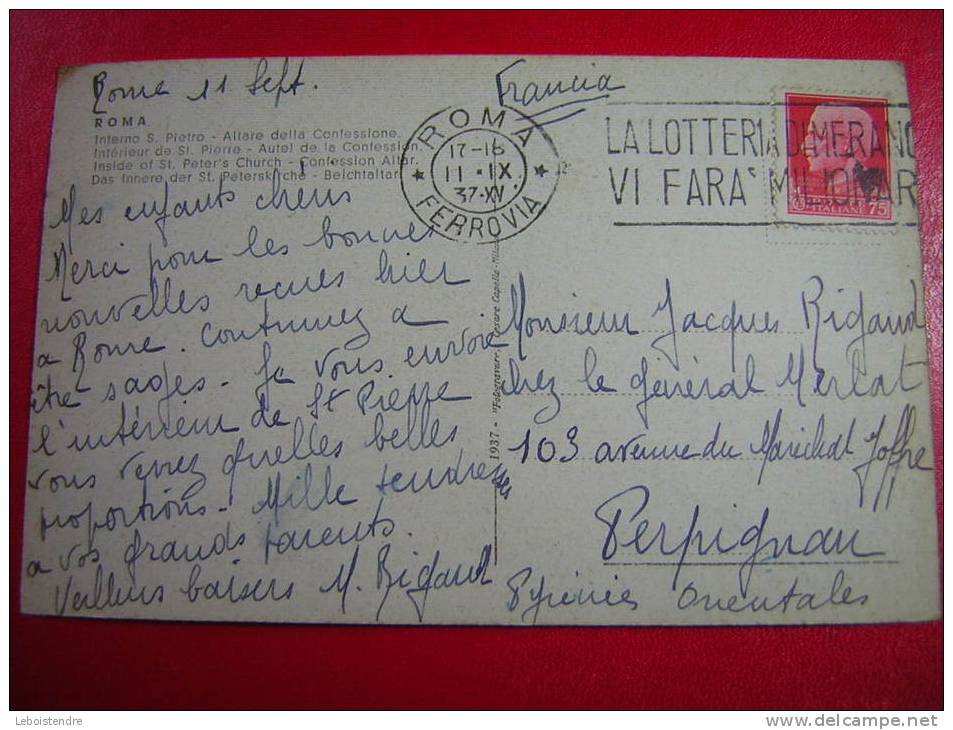 Rome 11 Sept.
ROMA
Interno S. Pietro - Altare della Confessione.
Intérieur de St. Pierre - Autel de la Confession.
Inside of St. Peter's Church - Confession Altar.
Das Innere der St. Peterskirche - Beichtaltar.
Mes enfants chéris
Merci pour les bonnes
nouvelles reçues hier
a Rome. Continuez a
être sages - Je vous envoie
l'intérieur de St Pierre
vous verrez quelles belles
proportions - Mille tendresses
a vos grands parents.
baisers M. Rigaud
1937 - "Fotogravure" Cesare Capello - Mil
Francia
ROMA
17-18
11·IX
37·XV
FERROVIA
LA LOTTERIA DI MERANO
VI FARA' MILIONARI
ITALIANE 75
Monsieur Jacques Rigaud
chez le général Merlat
103 avenue du Maréchal Joffre
Perpignan
Pyrénées Orientales
Leboistendre
www.delcampe.net